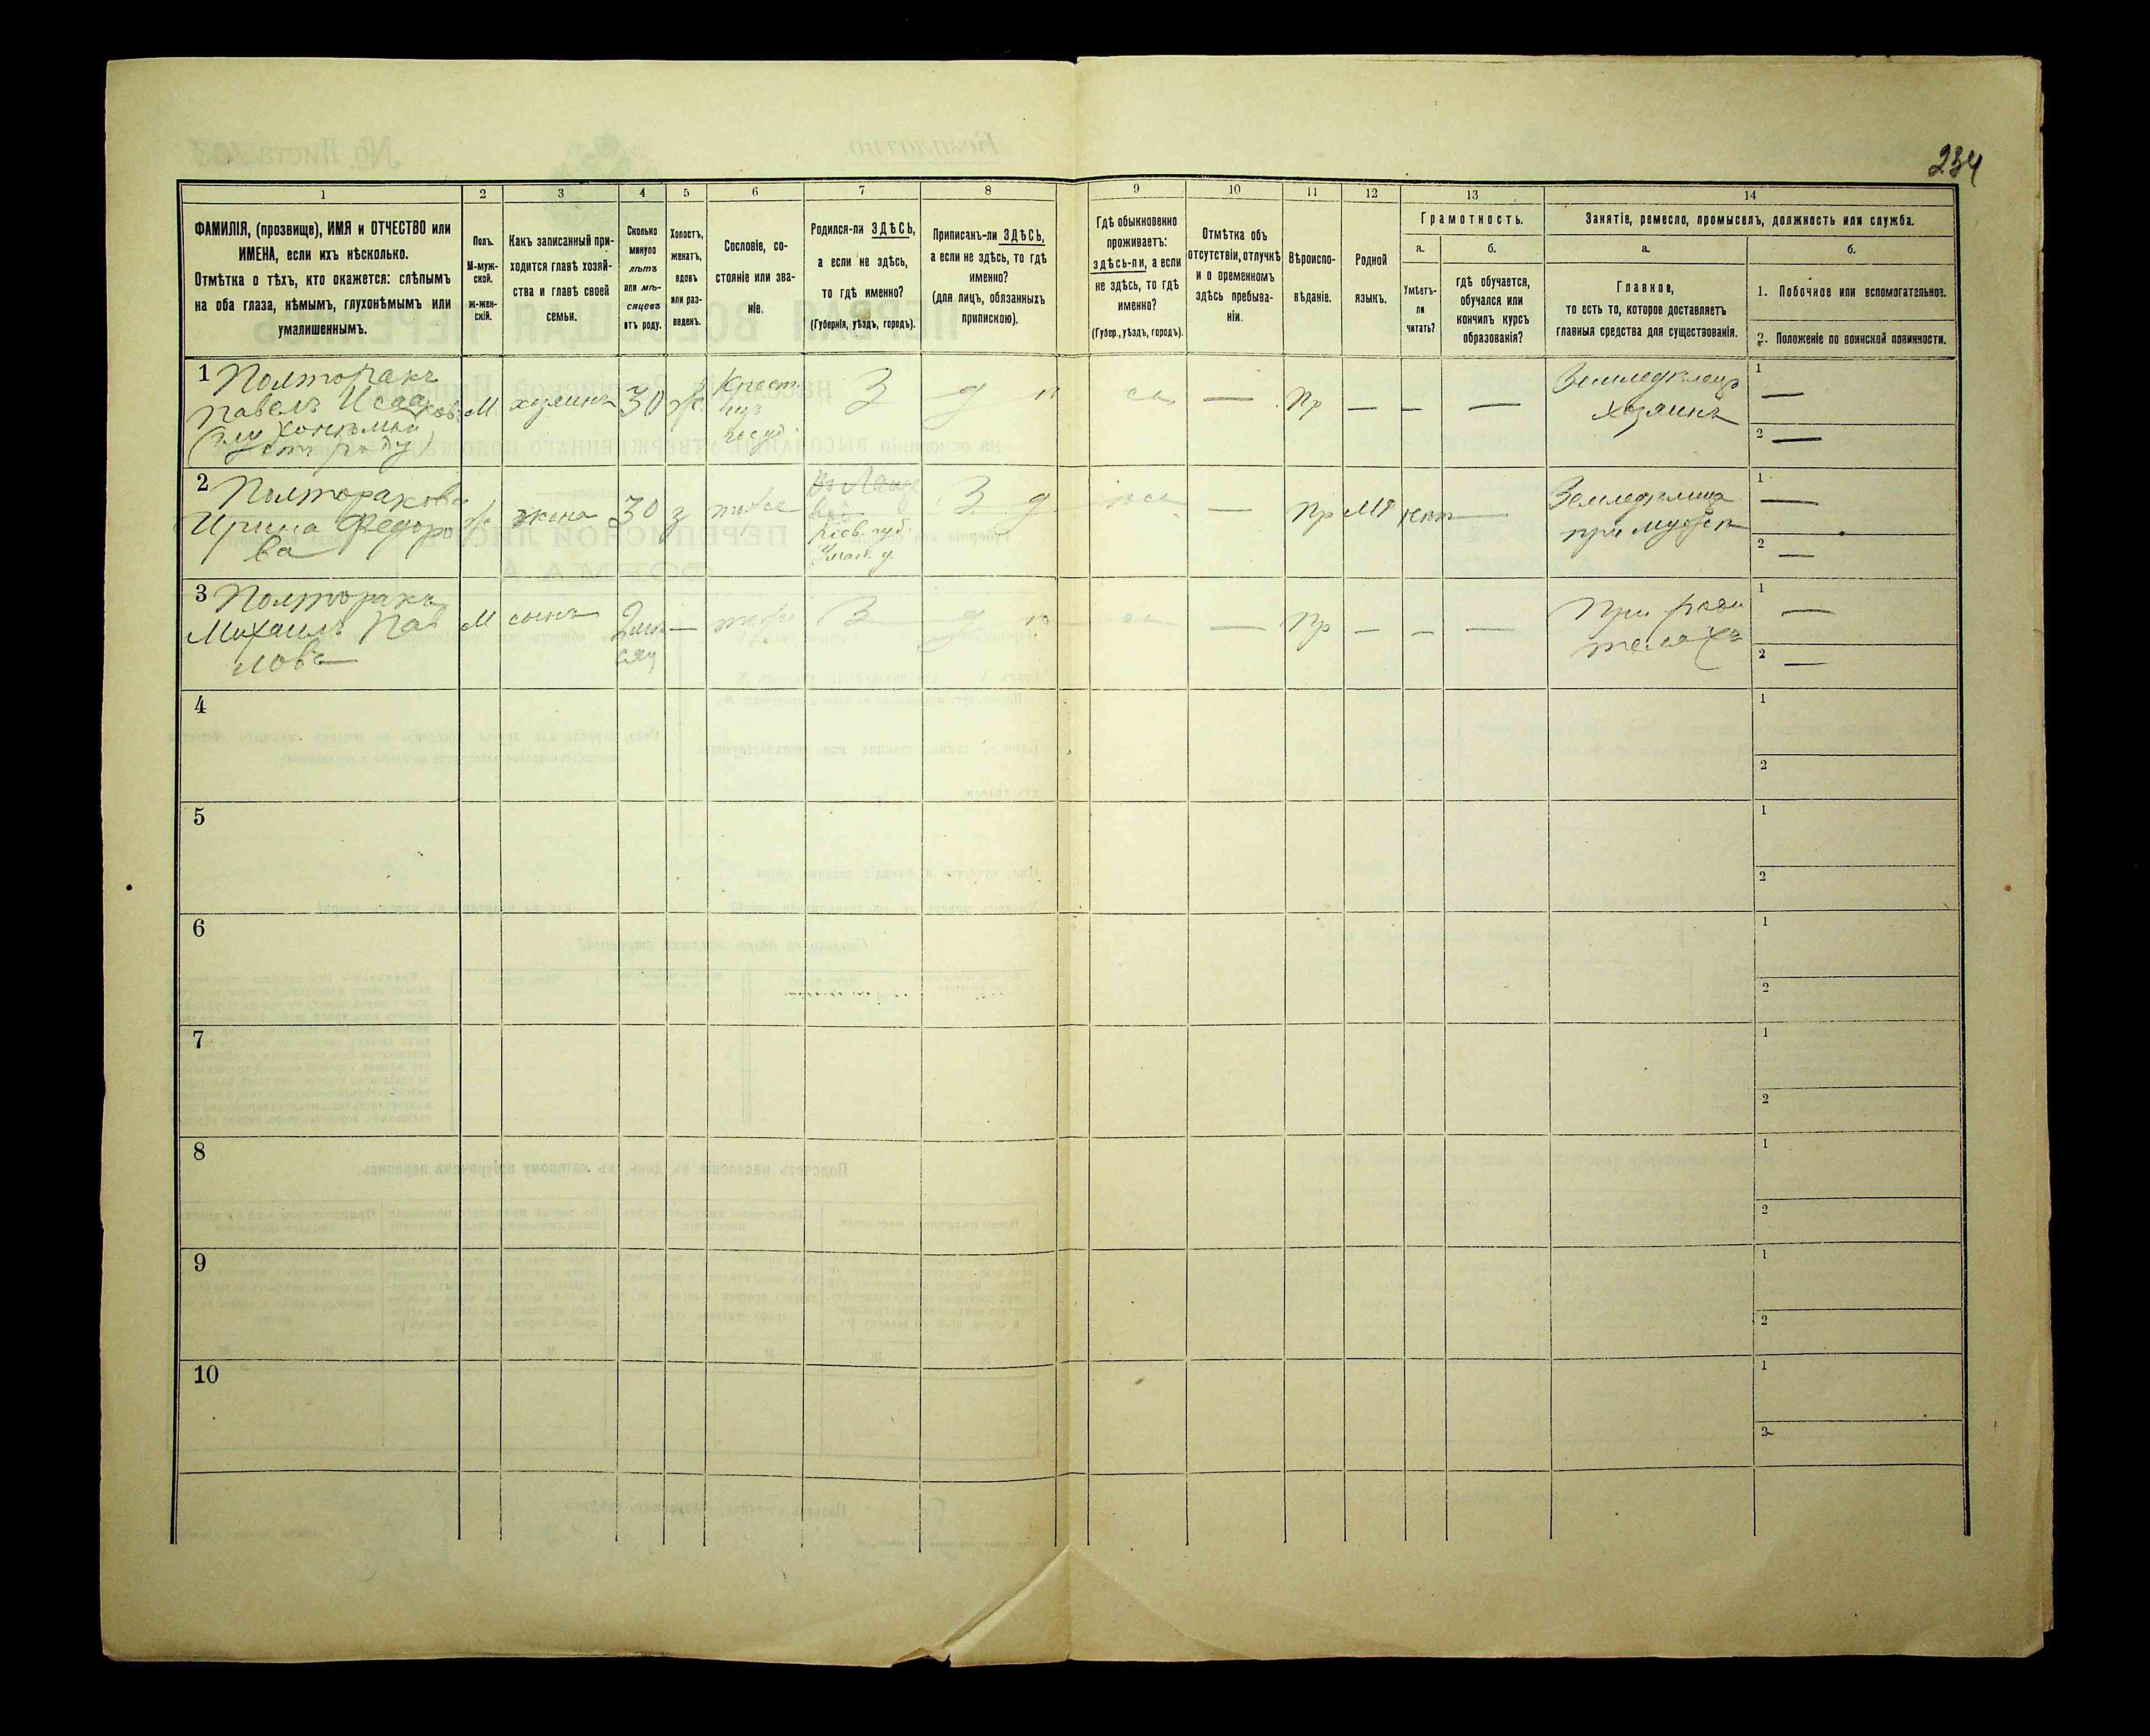 234
1 2 3 4 5 6 7 8 9 10 11 12 13 14
ФАМИЛІЯ, (прозвище), ИМЯ и ОТЧЕСТВО или
ИМЕНА, если ихъ нѣсколько.
Отмѣтка о тѣхъ, кто окажется: слѣпымъ
на оба глаза, нѣмымъ, глухонѣмымъ или
умалишеннымъ.
Полъ.
М-муж-
ской.
ж-жен-
скій.
Какъ записанный при-
ходится главѣ хозяй-
ства и главѣ своей
семьи.
Сколько
минуло
лѣтъ
или мѣ-
сяцевъ
отъ роду.
Холостъ,
женатъ,
вдовъ
или раз-
веденъ.
Сословіе, со-
стояніе или зва-
ніе.
Родился-ли ЗДѢСЬ,
а если не здѣсь,
то гдѣ именно?
(Губернія, уѣздъ, городъ).
Приписанъ-ли ЗДѢСЬ,
а если не здѣсь, то гдѣ
именно?
(для лицъ, обязанныхъ
припискою).
Гдѣ обыкновенно
проживаетъ:
здѣсь-ли, а если
не здѣсь, то гдѣ
именно?
(Губер., уѣздъ, городъ).
Отмѣтка объ
отсутствіи, отлучкѣ
и о временномъ
здѣсь пребыва-
ніи.
Вѣроиспо-
вѣданіе.
Родной
языкъ.
Грамотность.
а.
Умѣетъ-
ли
читать?
б.
гдѣ обучается,
обучался или
кончилъ курсъ
образованія?
Занятіе, ремесло, промыселъ, должность или служба.
а.
Главное,
то есть то, которое доставляетъ
главныя средства для существованія.
б.
1. Побочное или вспомогательное.
2. Положеніе по воинской повинности.
1 Полторакъ
Павелъ Исаа
ковъ
отъ роду)
М
хозяинъ
30
Крест.
изъ
госуд.
З д
Пр
—
—
—
—
Земледѣлецъ
хозяинъ
1 —
2 —
2 Полторакова
Ирина Федоро
ва
жена
30
з
тоже
Кіев. губ.
Уман. у.
З д
—
Пр
Мр
нѣт
—
Земледѣлица
при мужѣ
1 —
2 —
3 Полторакъ
Михаилъ Пав
ловъ
М
сынъ
2 мѣ
сяц
—
тоже
З д
—
Пр
—
—
—
При роди
теляхъ
1 —
2 —
4
1
2
5
1
2
6
1
2
7
1
2
8
1
2
9
1
2
10
1
2